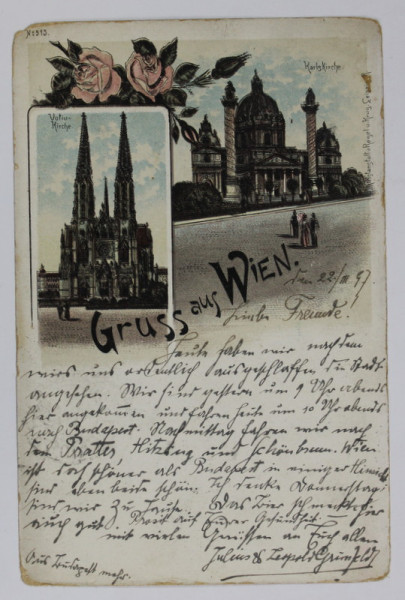 No 513.
Karlskirche.
Votiv-
Kirche
Gruss aus Wien.
den 22/III 97
Liebe Freunde.
Heute haben wir nachdem
wirs uns ordentlich ausgeschlaffen die Stadt
angesehen. Wir sind gestern um 9 Uhr abends
hier angekommen und fahren heite um 10 Uhr abends
nach Budapest. Nachmittag fahren wir nach
dem Pratter, Hitzing und Schönbrunn. Wien
ist doch schöner als Budapest in einiger Hinsicht
sind eben beide schön. Ich denke Donnerstag
sind wir zu Hause. Das Bier schmeckt hier
auch gut. Prosit auf Eurer Gesundheit.
mit vielen Grüssen an Euch allen
Julius & Leopold Grünfeld
Aus Budapest mehr.